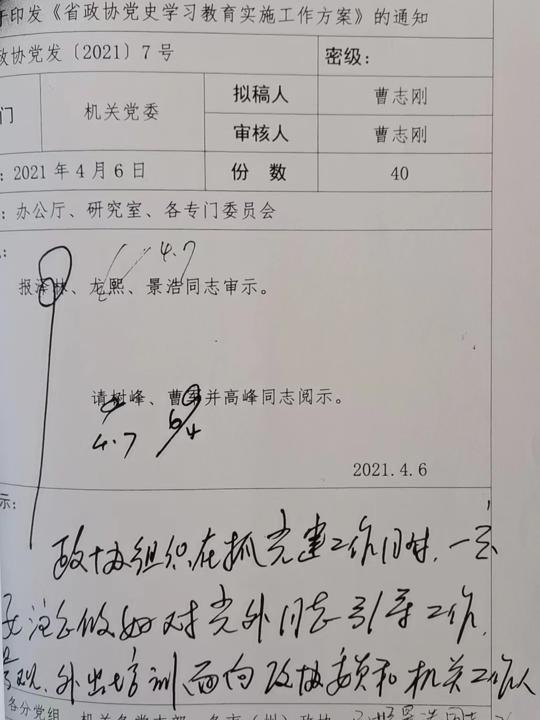 印发《省政协党史学习教育实施工作方案》的通知
政协党发〔2021〕7号 密级：
门 机关党委 拟稿人 曹志刚
审核人 曹志刚
：2021年4月6日 份 数 40
：办公厅、研究室、各专门委员会
4.7
报泽林、龙熙、景浩同志审示。
请树峰、曹军并高峰同志阅示。
4.7 6/4
2021.4.6
示：
政协组织在抓党建工作同时，一定
要注意做好对党外同志引导工作，
参观、外出培训，面向政协委员和机关工作人
各分党组、机关各党支部、各市（州）政协